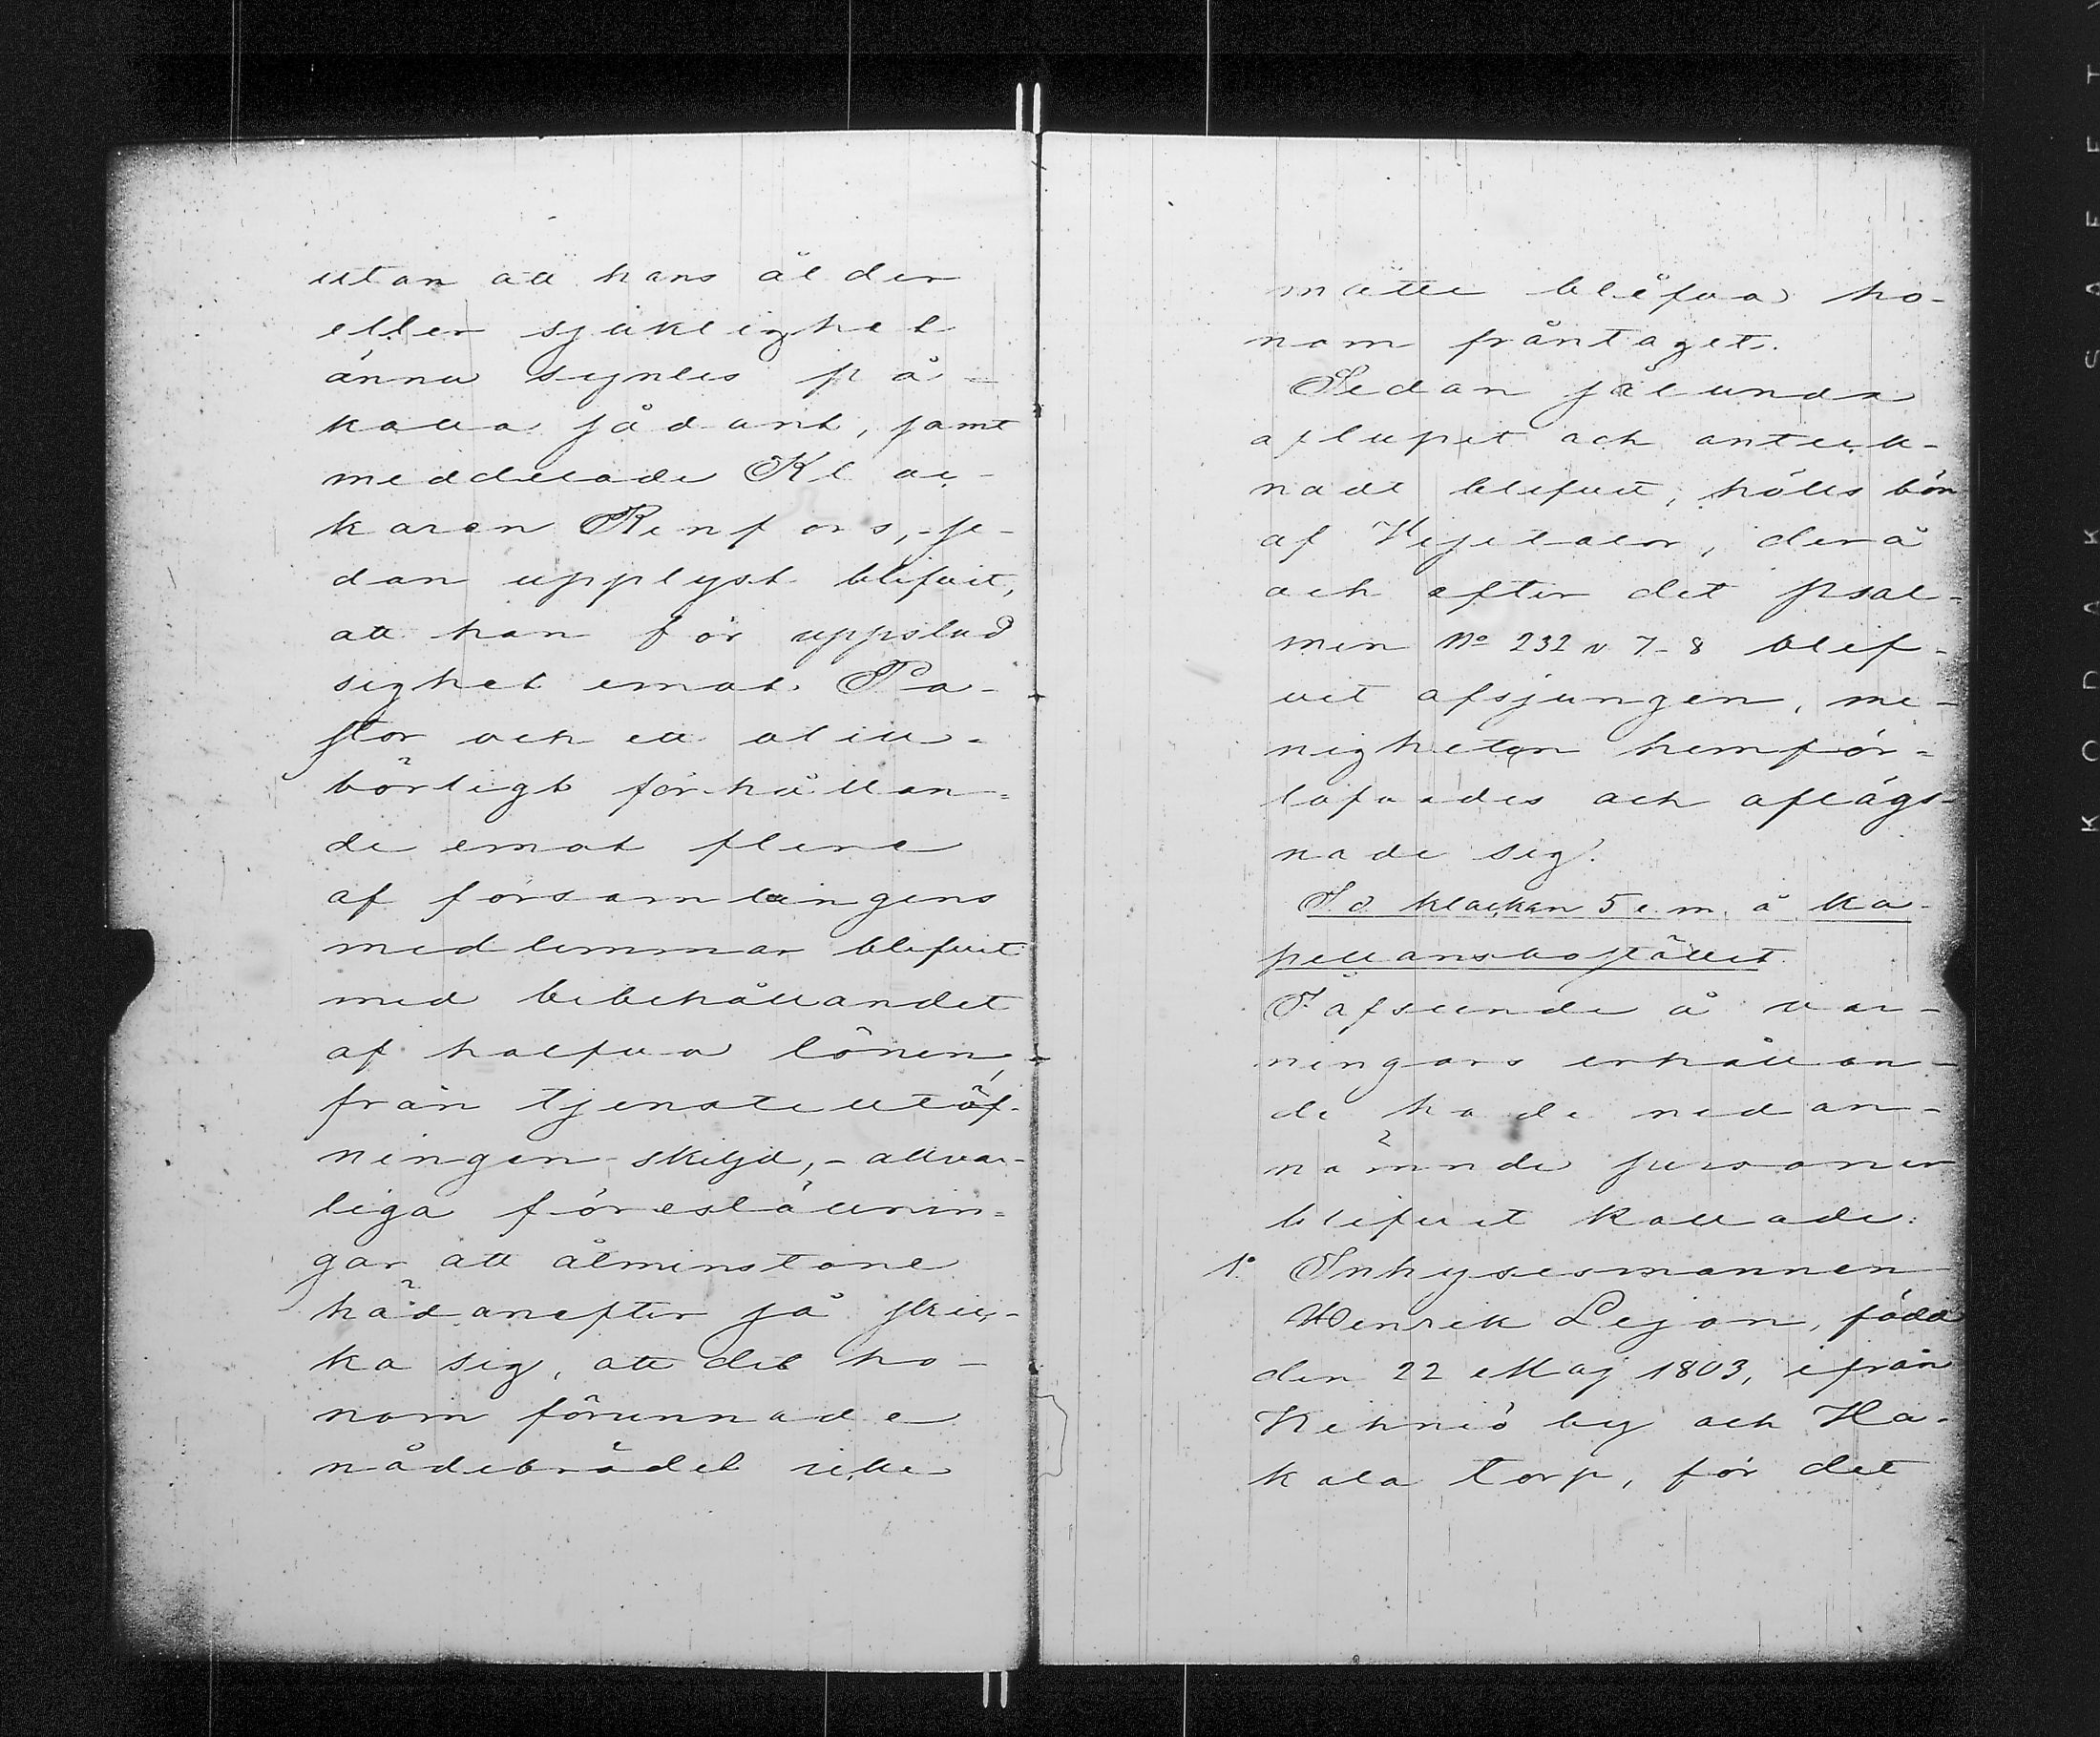 utan att hans ålder
eller sjuklighet
ännu synles på-
kalla sådant, samt
meddelade Kloc-
karen Renfors, - se-
dan upplyst blifvit,
att han för uppstud
sighet emot Pa-
stor och ett otill-
börligt förhållan-
de emot flere
af församlingens
medlemmar blifvit
med bibehållandet
af halfva lönen,
från tjensteutöf-
ningen skiljd, - allvar-
liga föreställnin-
gar att åtminstone
hädanefter så skic-
ka sig, att det ho-
nom förunnade
nådebrödet icke
måtte blifva ho-
nom fråntaget.
Sedan sålunda
aflupit och anteck-
nadt blifvit, hölls bön
af Visitator, derå
och efter det psal-
men No 232 v 7-8 blif-
vit afsjungen, me-
nigheten hemför-
lofvades och aflägs-
nade sig.
S. d. klockan 5 e. m. å Ka-
pellansbostället.
I afseende å var-
ningars erhållan-
de hade nedan-
nämnde personer
blifvit kallade:
1o Inhysesmannen
Henrik Lejon, född
den 22 Maj 1803, ifrån
Kihniö by och Ha-
kala torp, för det
KODAK SAFETY